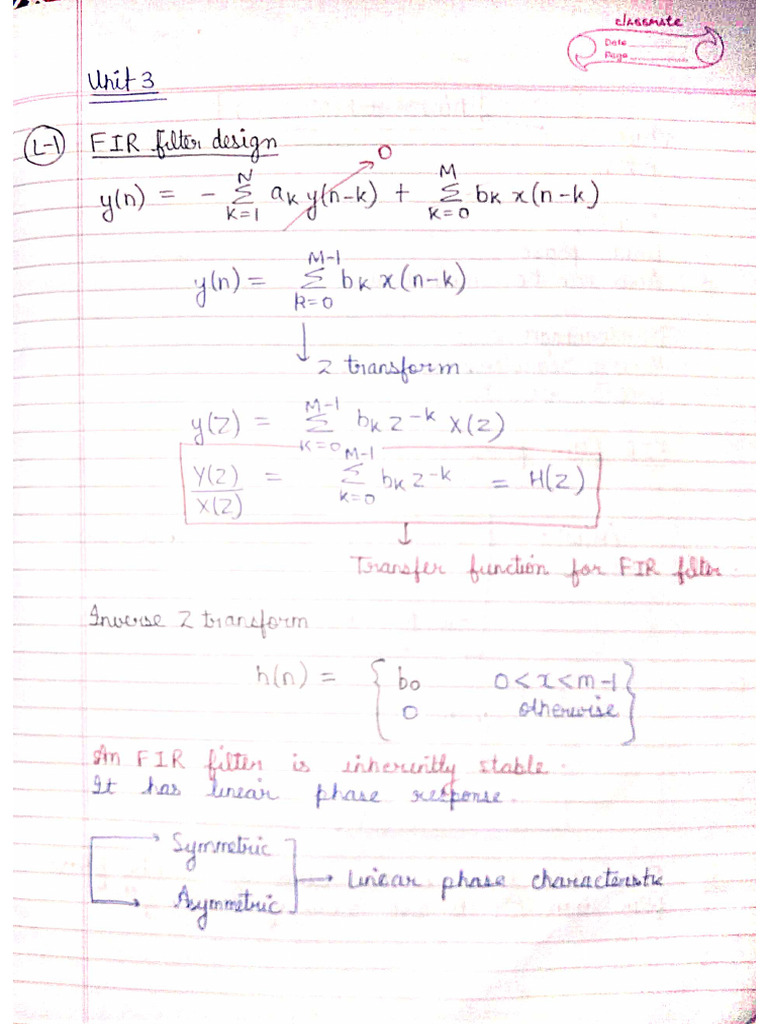 classmate
Date
Page
Unit 3
L-1 FIR filter design
y(n) = - N Σ k=1 ak y(n-k) + M Σ k=0 bk x(n-k)
0
y(n) = M-1 Σ k=0 bk x(n-k)
Z transform
y(Z) = M-1 Σ K=0 bk z^-k X(Z)
Y(Z)/X(Z) = M-1 Σ k=0 bk z^-k = H(Z)
Transfer function for FIR filter.
Inverse Z transform
h(n) = { b0 0<x<m-1 }
0 otherwise
An FIR filter is inherently stable.
It has linear phase response.
Symmetric
→ Linear phase characteristic
Asymmetric